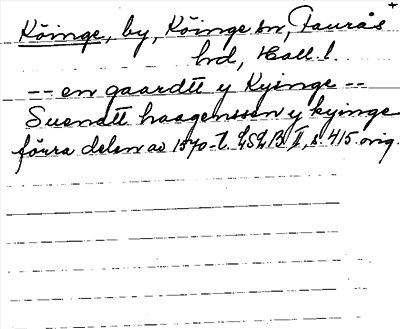 Köinge, by, Köinge sn, Faurås
hd, Hall. l.
-- en gaardtt y Kyinge --
Suendtt haagenssen y kyinge
förra delen av 1570-t. LSLB I, s. 415 orig.